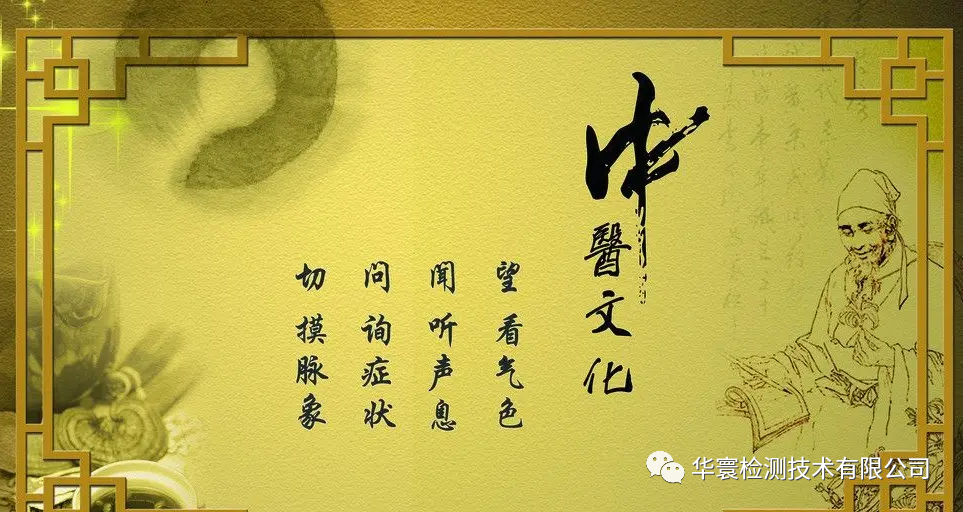 中醫文化
望 看气色
闻 听声息
问 询症状
切 摸脉象
华寰检测技术有限公司